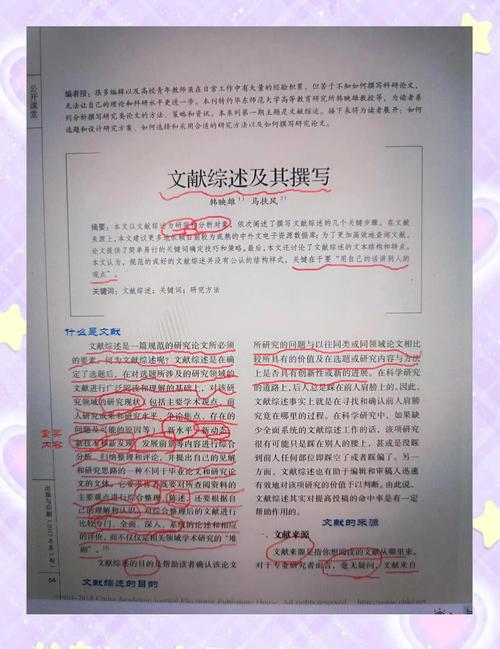 公开课堂
编者按：很多编辑以及高校青年教师虽在日常工作中有大量的经验积累，但苦于不知如何撰写科研论文，
无法让自己的理论和科研水平更进一步。本刊特约华东师范大学高等教育研究所韩映雄教授等，为读者系
列分析撰写研究类论文的方法、策略和资讯。本系列第一期主题是文献综述。接下来将为读者展开：如何
选题和设计研究方案、如何选择和采用合适的研究方法以及如何撰写研究论文。
文献综述及其撰写
韩映雄 1） 马扶风 2）
摘要：本文以文献综述为研究和分析对象，依次阐述了撰写文献综述的几个关键步骤。在文献
来源上，本文建议更多地依赖目前较为成熟的中外文电子资源数据库；为了更加高效地查阅文献，
论文提供了简单易行的关键词确定技巧和策略。最后，本文还讨论了文献综述的文本结构和特点。
本文认为，规范的或好的文献综述并没有公认的结构样式，关键在于要“用自己的话讲别人的
观点”。
关键词：文献综述；关键词；研究方法
什么是文献
文献综述是一篇规范的研究论文所必须
的要素。何为文献综述呢？文献综述是在确
定了选题后，在对选题所涉及的研究领域的
文献进行广泛阅读和理解的基础上，对该研
究领域的研究现状（包括主要学术观点、前
人研究成果和研究水平、争论焦点、存在的
问题及可能的原因等）、新水平、新动态、
新技术和新发现、发展前景等内容进行综合
分析、归纳整理和评论，并提出自己的见解
和研究思路的一种不同于毕业论文和研究论
文的文体。它要求作者既要对所查阅资料的
主要观点进行综合整理、陈述，还要根据自
己的理解和认识，对综合整理后的文献进行
比较专门、全面、深入、系统的论述和相应
的评价，而不仅仅是相关领域学术研究的“堆
砌”。[1]
文献综述的目的是帮助读者确认该论文
文献综述的目的
重要
内容
所研究的问题与以往同类或同领域论文相比
较所具有的价值及在选题或研究内容与方法
上是否具有创新性或新的进展。在科学研究
的道路上，后人总是踩在前人肩膀上的。因此，
文献综述事实上就是在寻找和确认前人肩膀
究竟在哪里的过程。在科学研究中，如果缺
少全面系统的文献综述工作的话，该项研究
很有可能只是踩在别人的腰上，甚或是没踩
到前人任何部位即踩空了或者踩偏了。另一
方面，文献综述也有助于编辑和审稿人迅速
有效地对该项研究的价值予以判断。由此说，
文献综述其实对提高投稿的命中率是有一定
帮助作用的。
文献的来源
一、文献来源
文献来源是指你想阅读的文献从哪里来。
对于专业研究者而言，毫无疑问，文献来自
出版与印刷
64